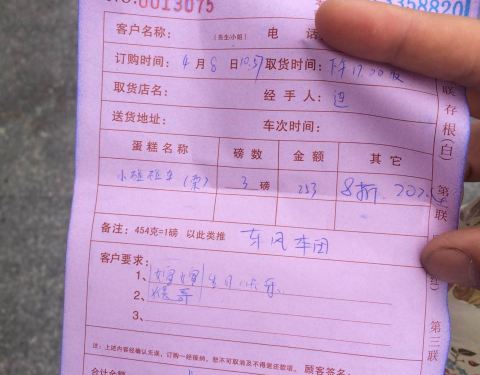 NO.0013075 3358820
客户名称: (先生/小姐) 电 话
订购时间: 4月8日10:57 取货时间: 下午17:00
取货店名: 经手人:
送货地址: 车次时间:
蛋糕名称 磅数 金额 其它
3磅 253 8折
备注: 454克=1磅 以此类推 东风车团
客户要求:
1、 生日快乐
2、
3、
注:上述内容经确认无误,订购一经接纳,恕不可取消及不得退还款项。 顾客签名:
合计金额
第一联存根(白)
第二联
第三联